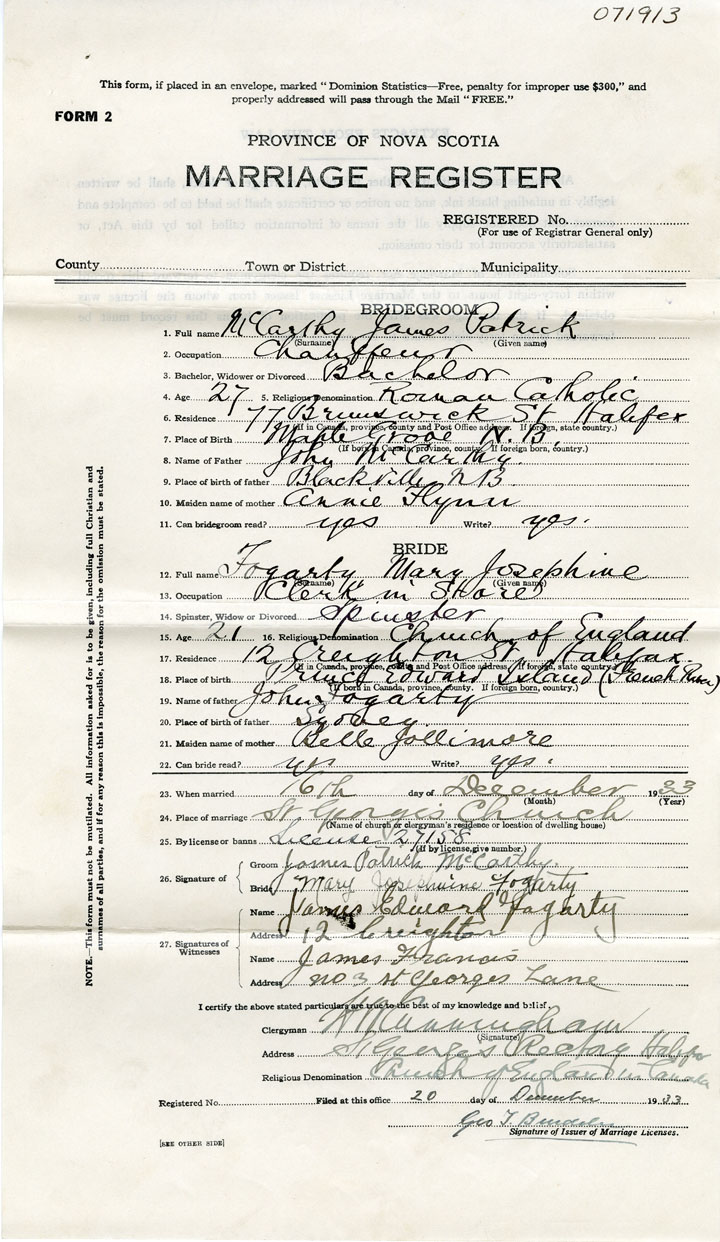 071913
This form, if placed in an envelope, marked "Dominion Statistics—Free, penalty for improper use $300," and
properly addressed will pass through the Mail "FREE."
FORM 2
PROVINCE OF NOVA SCOTIA
MARRIAGE REGISTER
REGISTERED No.
(For use of Registrar General only)
County Town or District Municipality
BRIDEGROOM
1. Full name McCarthy James Patrick
(Surname) (Given name)
2. Occupation Chauffeur
3. Bachelor, Widower or Divorced Bachelor
4. Age 27 5. Religious Denomination Roman Catholic
6. Residence 77 Brunswick St Halifax
(If in Canada, province, county and Post Office address. If foreign, state country.)
7. Place of Birth Maple Grove N.B.
(If born in Canada, province, county. If foreign born, country.)
8. Name of Father John McCarthy.
9. Place of birth of father Blackville N.B.
10. Maiden name of mother Annie Flynn
11. Can bridegroom read? yes Write? yes.
BRIDE
12. Full name Fogarty Mary Josephine
(Surname) (Given name)
13. Occupation Clerk in Store
14. Spinster, Widow or Divorced Spinster
15. Age 21 16. Religious Denomination Church of England
17. Residence 12 Creighton St Halifax
(If in Canada, province, county and Post Office address. If foreign, state country.)
18. Place of birth Prince Edward Island (French River)
(If born in Canada, province, county. If foreign born, country.)
19. Name of father John Fogarty
20. Place of birth of father Sydney.
21. Maiden name of mother Belle Jollimore
22. Can bride read? yes Write? yes.
23. When married 16th day of December 1933
(Month) (Year)
24. Place of marriage St George's Church
(Name of church or clergyman's residence or location of dwelling house)
25. By license or banns License 27158
(If by license, give number.)
26. Signature of
Groom James Patrick McCarthy.
Bride Mary Josephine Fogarty
27. Signatures of Witnesses
Name James Edward Fogarty
Address 12 Creighton
Name James Francis
Address no 3 St Georges Lane
I certify the above stated particulars are true to the best of my knowledge and belief.
Clergyman Cunningham
(Signature)
Address St George's Rectory Halifax
Religious Denomination Church of England in Canada
Registered No. Filed at this office 20 day of December 1933
Geo T
Signature of Issuer of Marriage Licenses.
[SEE OTHER SIDE]
NOTE.—This form must not be mutilated. All information asked for is to be given, including full Christian and
surnames of all parties, and if for any reason this is impossible, the reason for the omission must be stated.